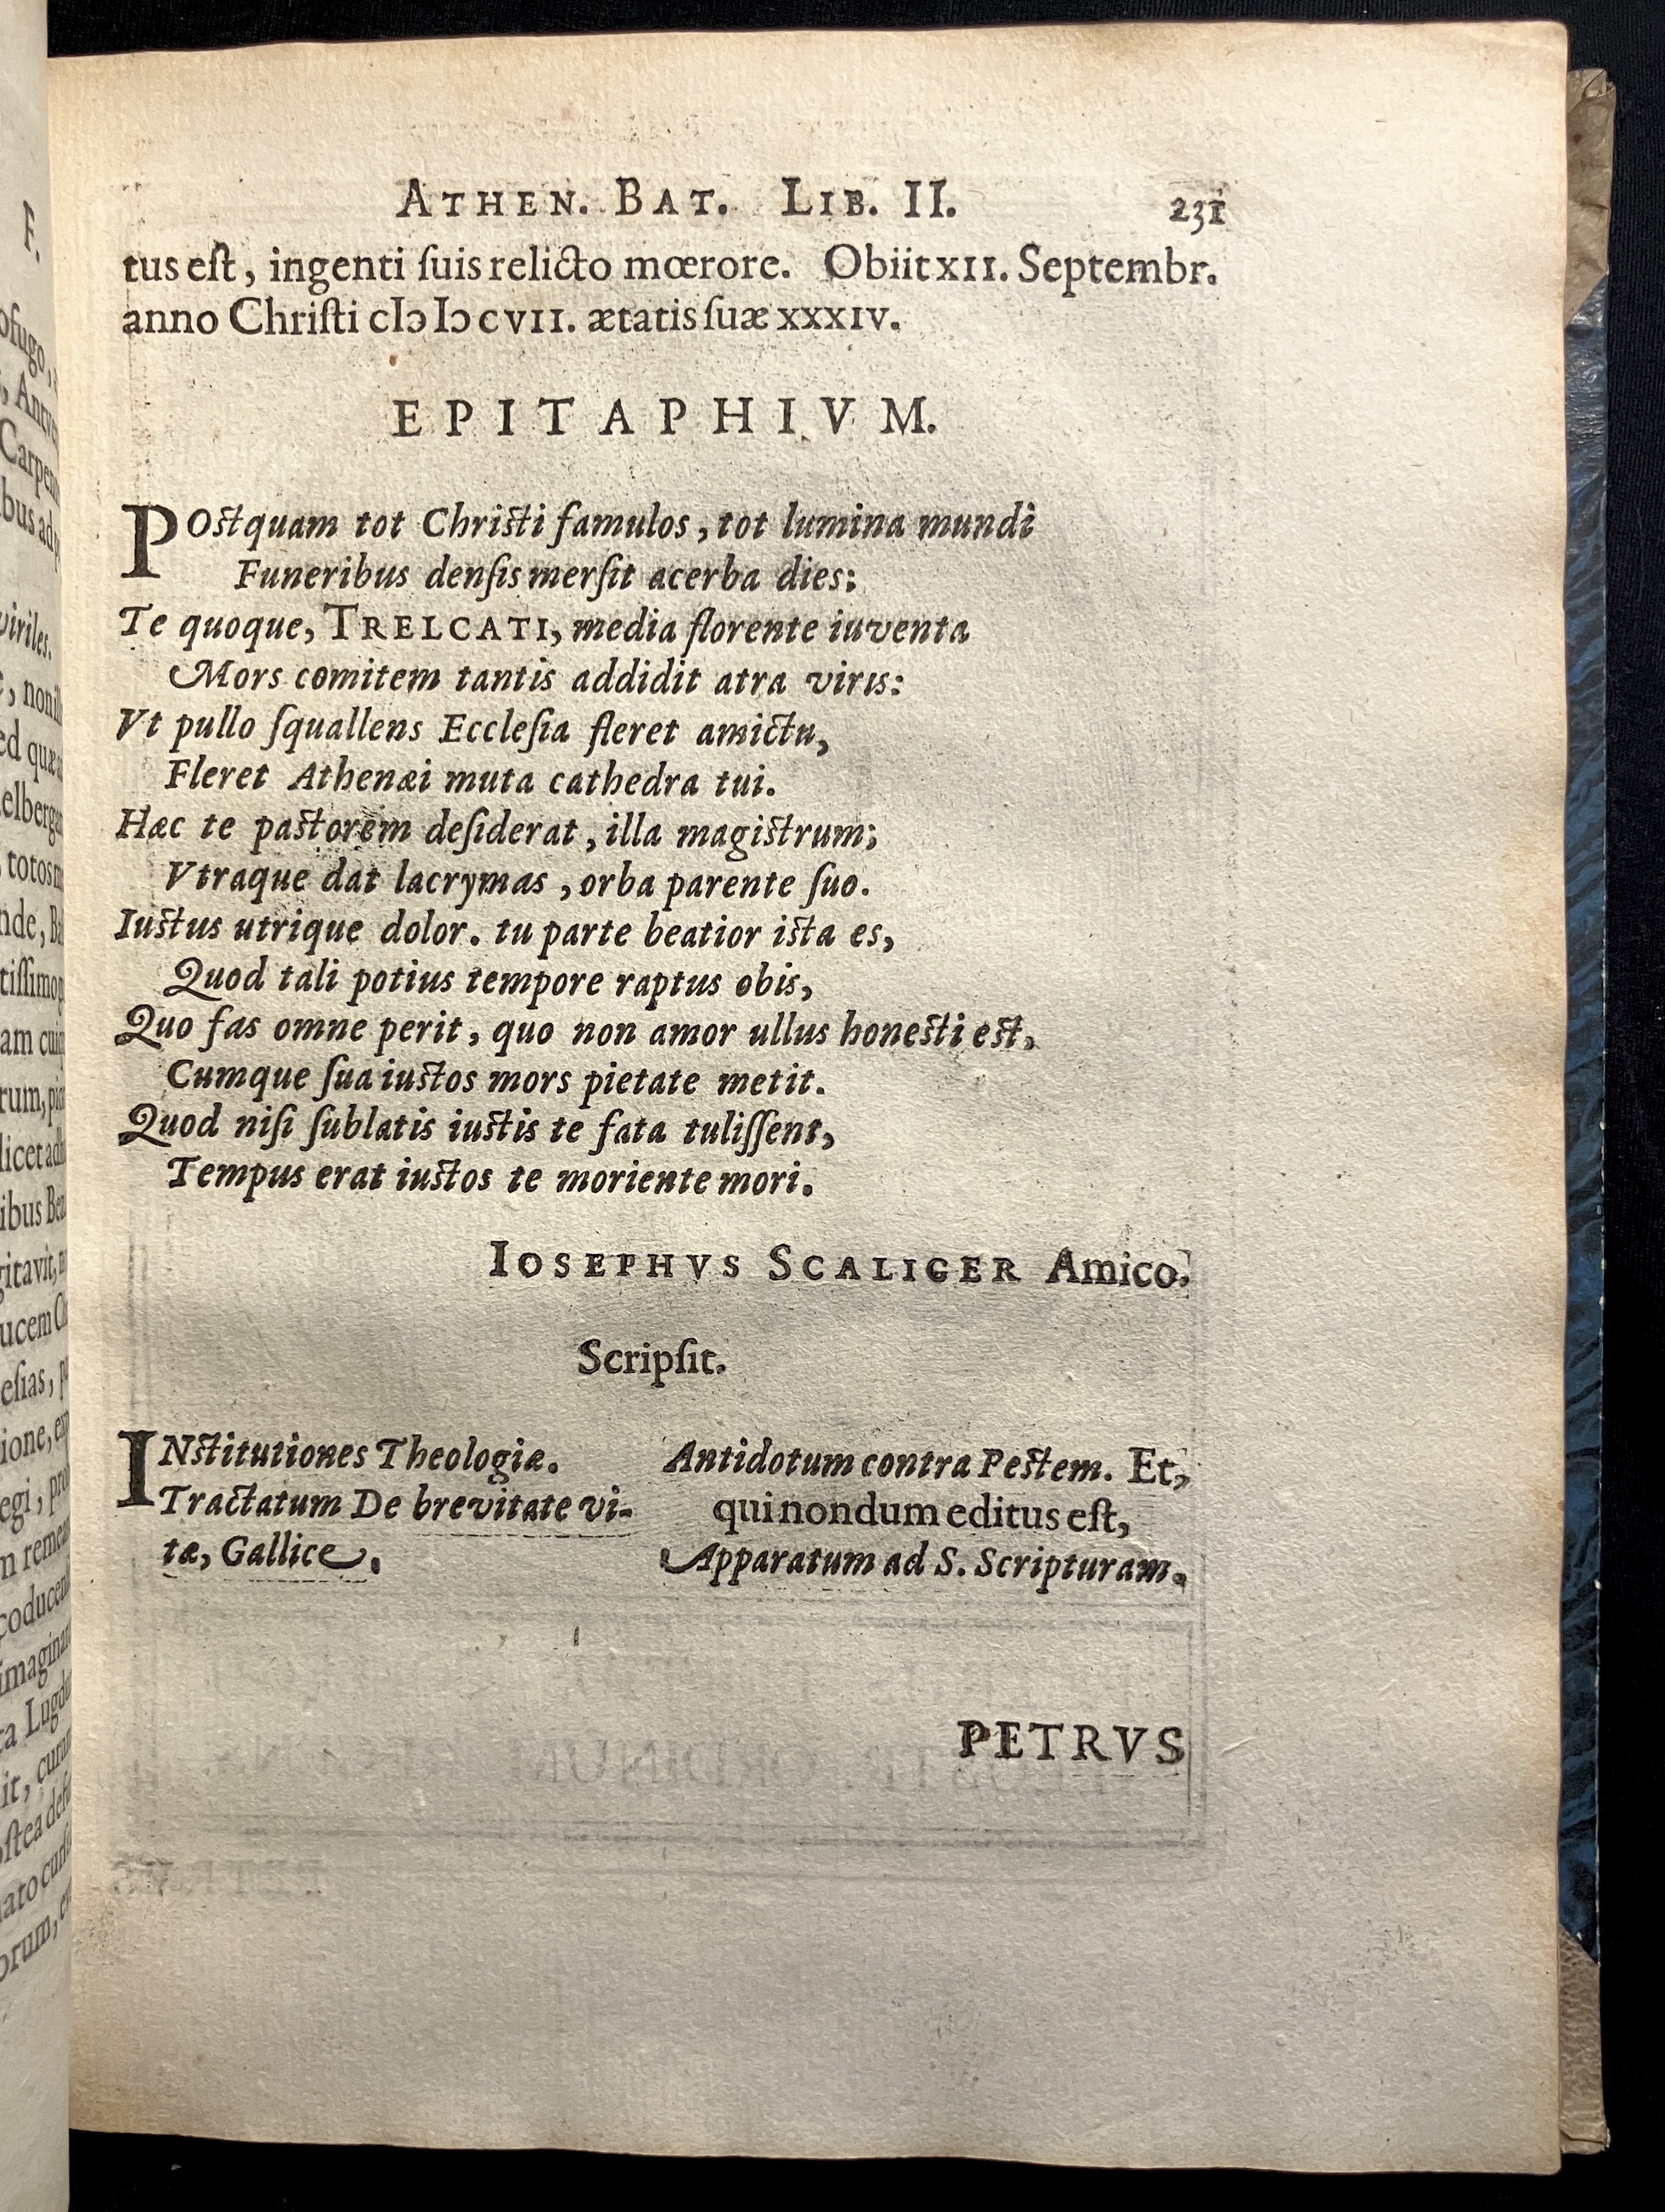 ATHEN. BAT. LIB. II. 231
tus eſt, ingenti ſuis relicto mœrore. Obiit XII. Septembr.
anno Chriſti cIↄ Iↄ cVII. ætatis ſuæ XXXIV.
EPITAPHIVM.
POstquam tot Christi famulos, tot lumina mundi
Funeribus denſis merſit acerba dies:
Te quoque, TRELCATI, media florente iuventa
Mors comitem tantis addidit atra viris:
Vt pullo ſquallens Eccleſia fleret amictu,
Fleret Athenæi muta cathedra tui.
Hæc te pastorem deſiderat, illa magistrum;
Vtraque dat lacrymas, orba parente ſuo.
Iustus utrique dolor. tu parte beatior ista es,
Quod tali potius tempore raptus obis,
Quo fas omne perit, quo non amor ullus honesti est,
Cumque ſua iustos mors pietate metit.
Quod niſi ſublatis iustis te fata tuliſſent,
Tempus erat iustos te moriente mori.
IOSEPHVS SCALIGER Amico.
Scripſit.
INstitutiones Theologiæ.
Tractatum De brevitate vi-
tæ, Gallice.
Antidotum contra Pestem. Et,
qui nondum editus eſt,
Apparatum ad S. Scripturam.
PETRVS